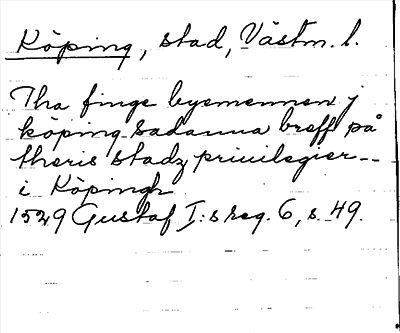 Köping, stad, Västm. l.
Tha finge byemennen j
köping sadanna breff på
theris stadz priuilegier--
i Köpingh
1529 Gustaf I:s reg. 6, s. 49.